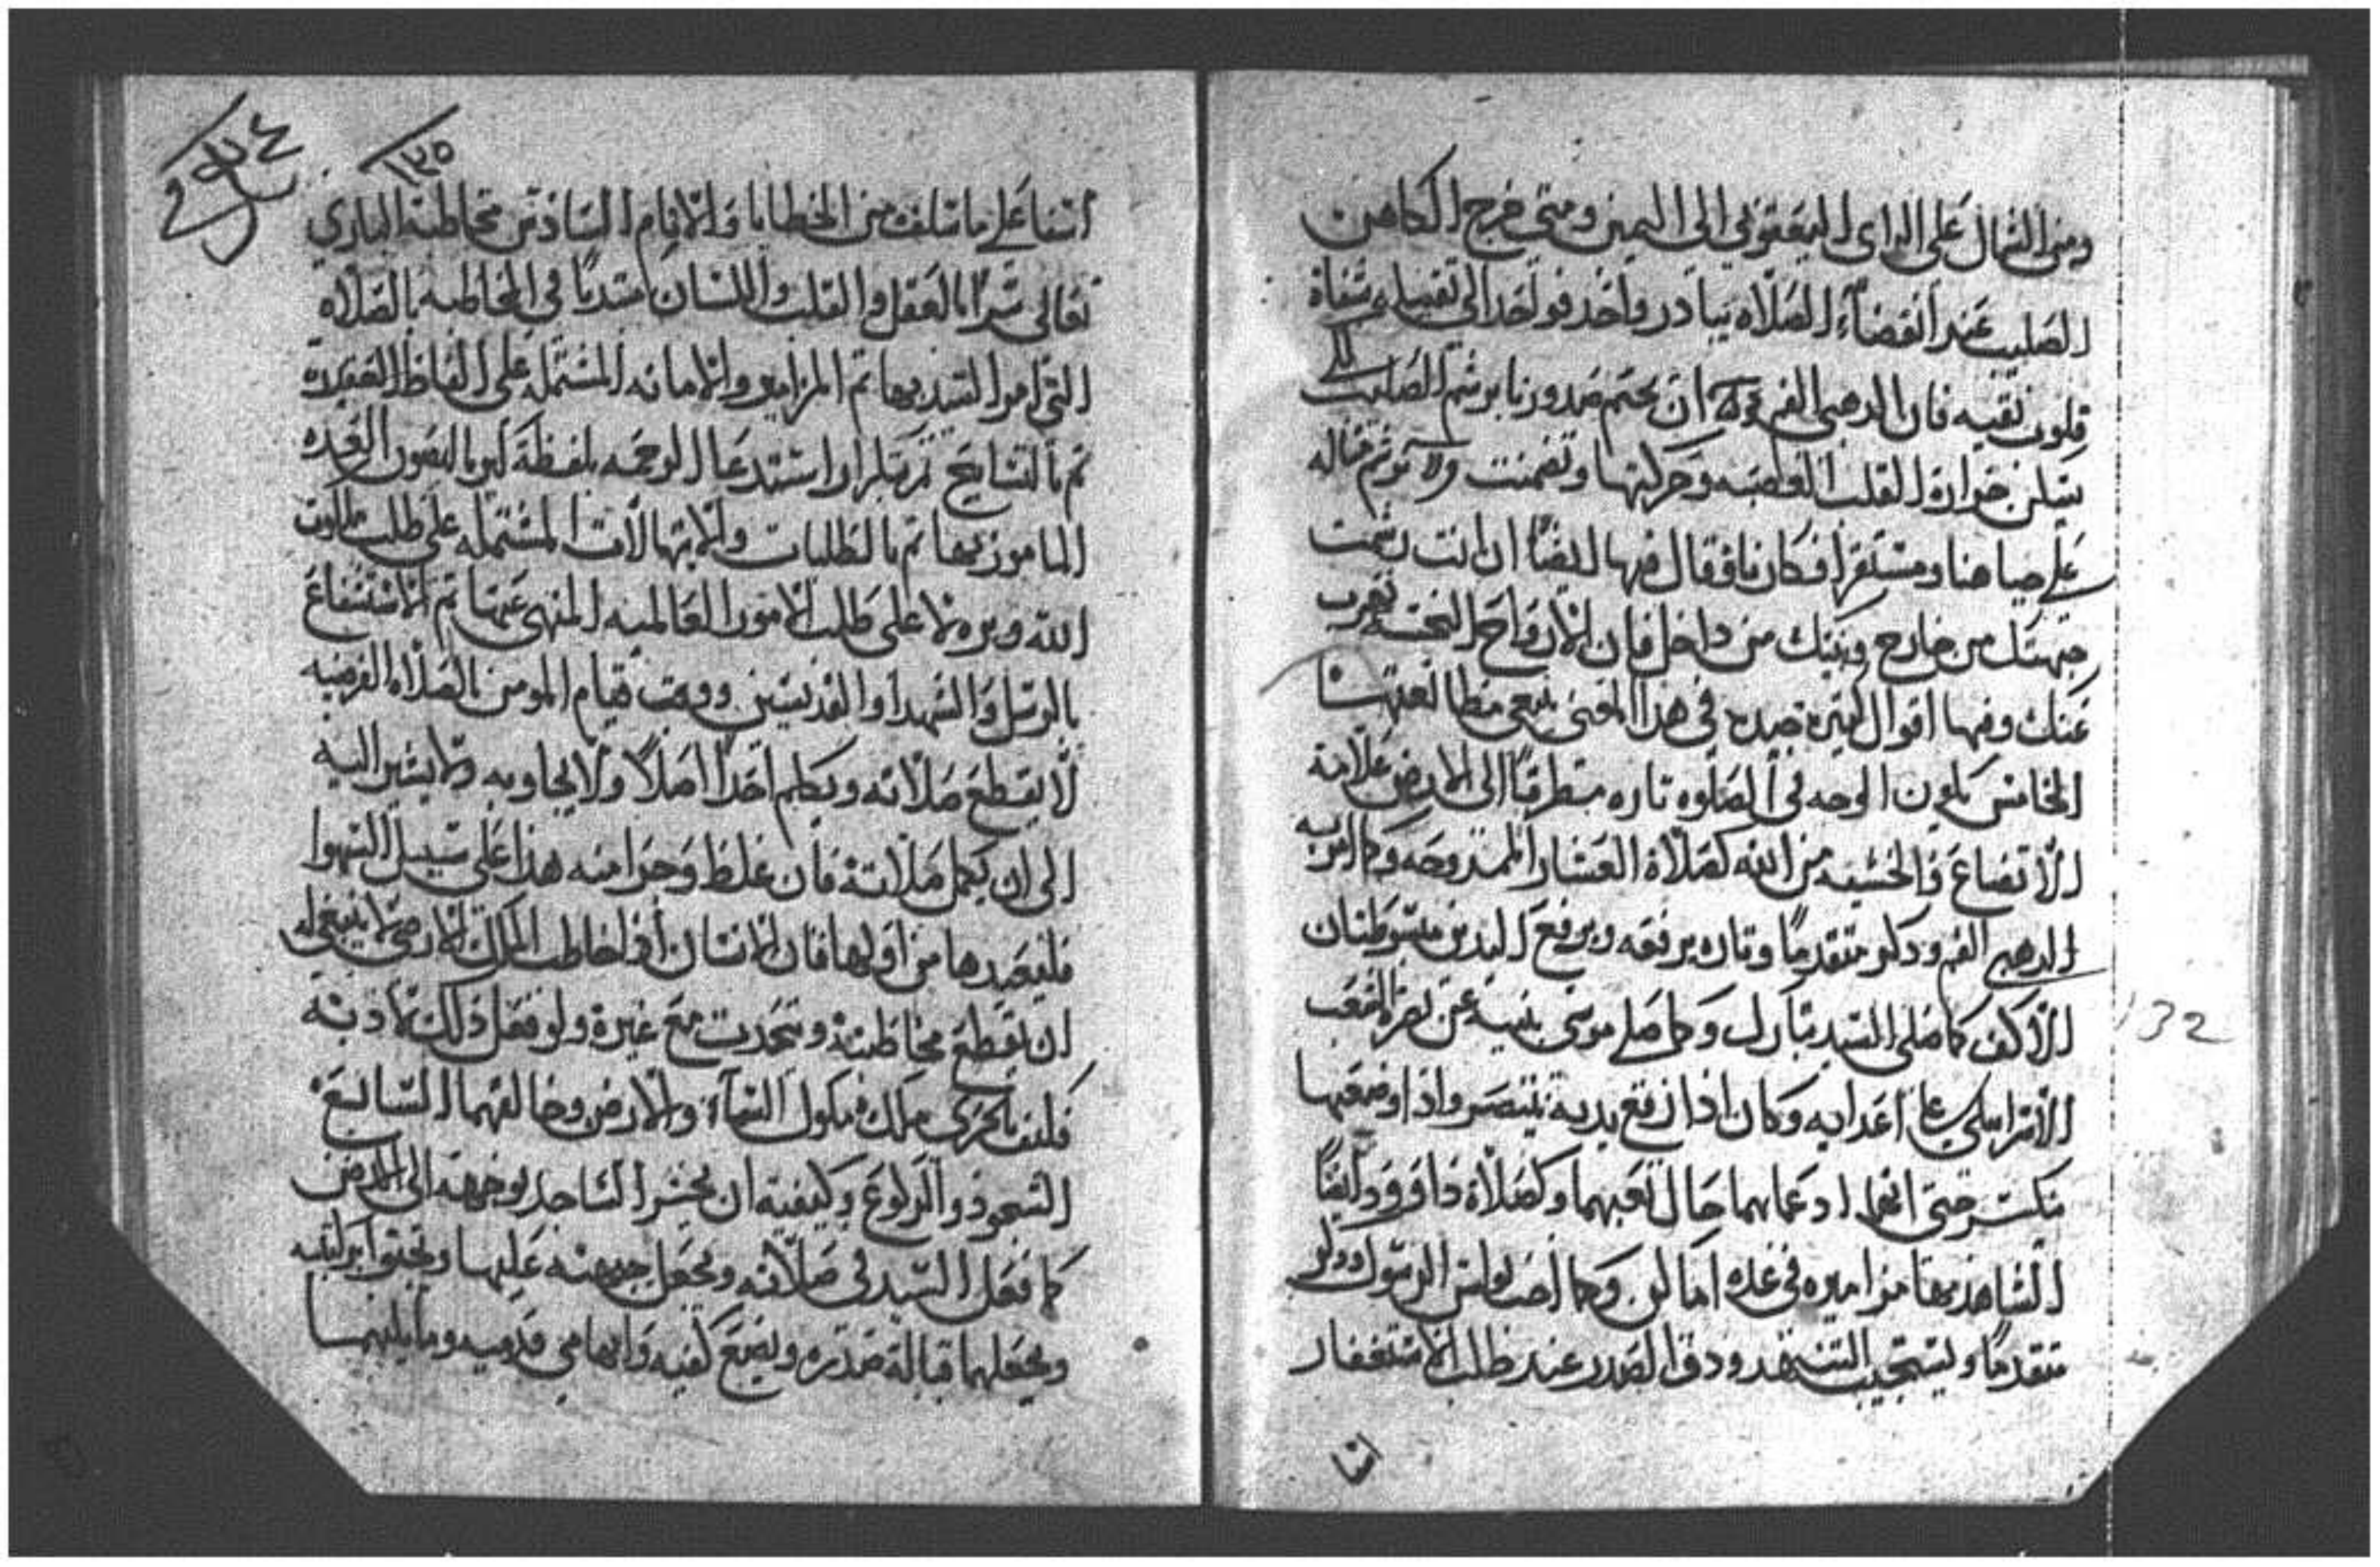 ومن الشمال على الراى اليعقوبي الى اليمين ومتى خرج الكاهن
الصليب عند انقضاء الصلاه يبادر واحد فواحد الى تقبيله بشفاه
قلوب نقيه فان الدهبي الفم ان نختم صدورنا برشم الصليب
يسكن حرارة القلب الغضبيه وحركتها
على ومستقرا فكان نافقال فيها ايضا ان انت رشمت
جبهتك من خارج من داخل فان الارواح النجسه تهرب
عنك وفيها اقوال كثيره جيده في هذا المعنى ينبغي مطالعتها
الخامس يكون الوجه في الصلوه تاره مطرقا الى الارض علامة
الاتضاع والخشيه من الله كصلاة العشار الممدوحه وكما امر به
الدهبي الفم ودكر متقدما وتاره يرفعه ويرفع اليدين مبسوطتان
الاكف كما صلى السيد تبارك وكما صلى موسى بنية عن نصرة الشعب
الاسرايلي على اعدايه وكان اذا رفع يديه ينتصر واذا وضعهما
ينكسر حتى انهما دعماهما حال تعبهما وكصلاة داوود ايضا
الشاهد بها مزاميره في عدة اماكن وكما اوصا بولس الرسول ودكر
متقدما ويستحب التنهد ودق الصدر عند طلب الاستغفار
اسفا
١٣٥
اسفا على ما سلف من الخطايا والاثام السادس مخاطبة الباري
تعالى سرا بالعقل والقلب واللسان مبتديا في المخاطبه بالصلاه
التي امر السيد بها ثم المزامير والامانه المشتمله على الفاظ العقيده
ثم بالتسابيح استدعا الرحمه بلفظة كيرياليصون العده
المامور بها ثم بالطلبات والابتهالات المشتمله على طلب ملكوت
الله وبره لا على طلب الامور العالميه المنهي عنها ثم الاستشفاع
بالرسل والشهدا والقديسين ووقت قيام المومن بالصلاه الفرضيه
لا يقطع صلاته ويكلم احدا اصلا ولا يجاوبه ولا يشير اليه
الى ان يكمل صلاته فان غلظ وجرا منه هذا على سبيل السهوا
فليعيدها من اولها فان الانسان اذا خاطب الملك الارضي لا ينبغي له
ان يقطع مخاطبته ويتحدث مع غيره ولو فعل ذلك لادبه
فكيف بالحري ملك ملوك السماء والارض وخالقهما السابع
السجود والركوع وكيفيته ان يخر الساجد بوجهه الى الارض
كما فعل السيد في صلاته ويجعل جبهته عليها ويجثوا بركبتيه
ويجعلهما قبالة صدره ويضع كفيه وابهامي قدميه وما يليهما
132